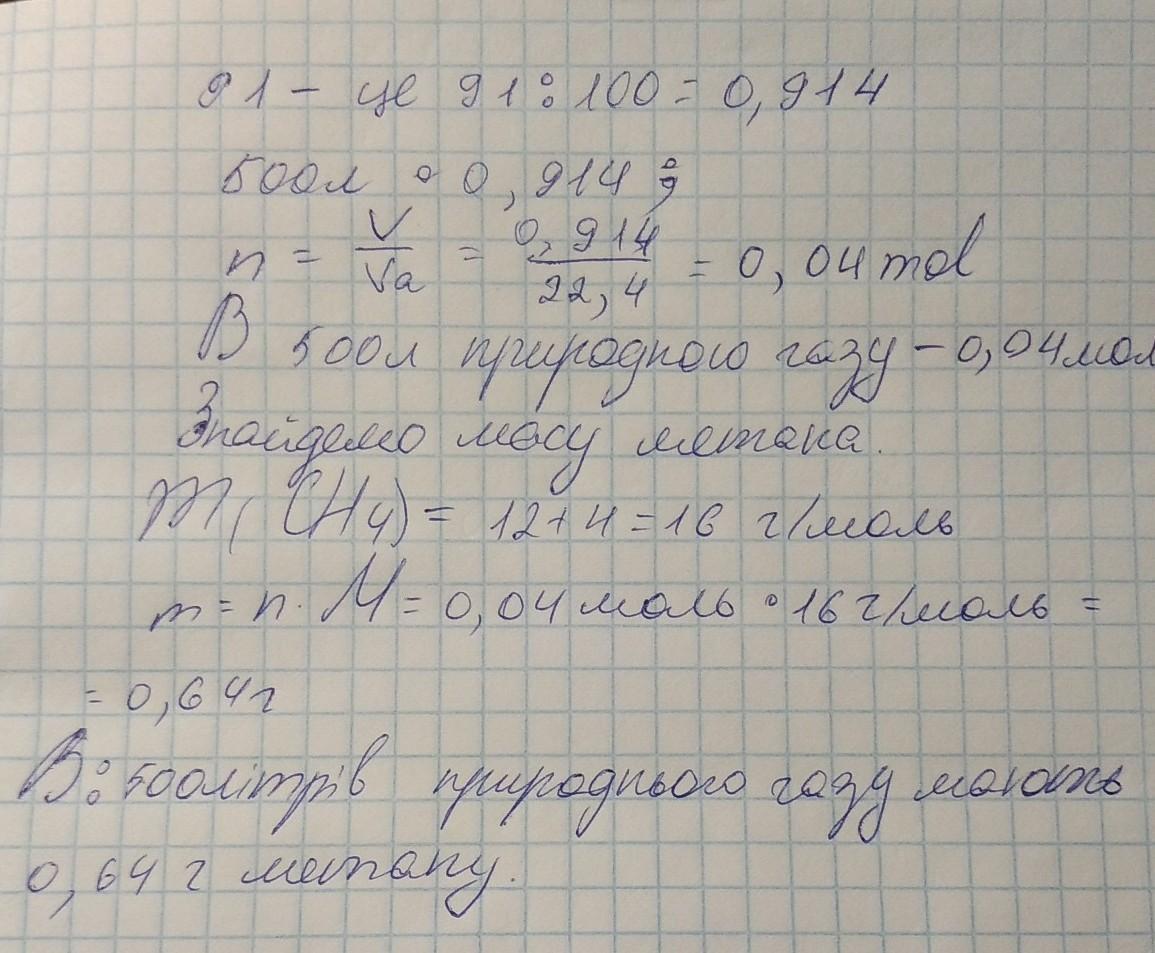 91 - це 91 : 100 = 0,914
500л • 0,914 ;
n = V/Va = 0,914/22,4 = 0,04 mol
В 500л природного газу - 0,04 мол
Знайдемо масу метана.
M( CH4) = 12+4 = 16 г/моль
m = n · M = 0,04 моль • 16 г/моль =
= 0,64г
В: 500літрів природнього газу мають
0,64 г метану.